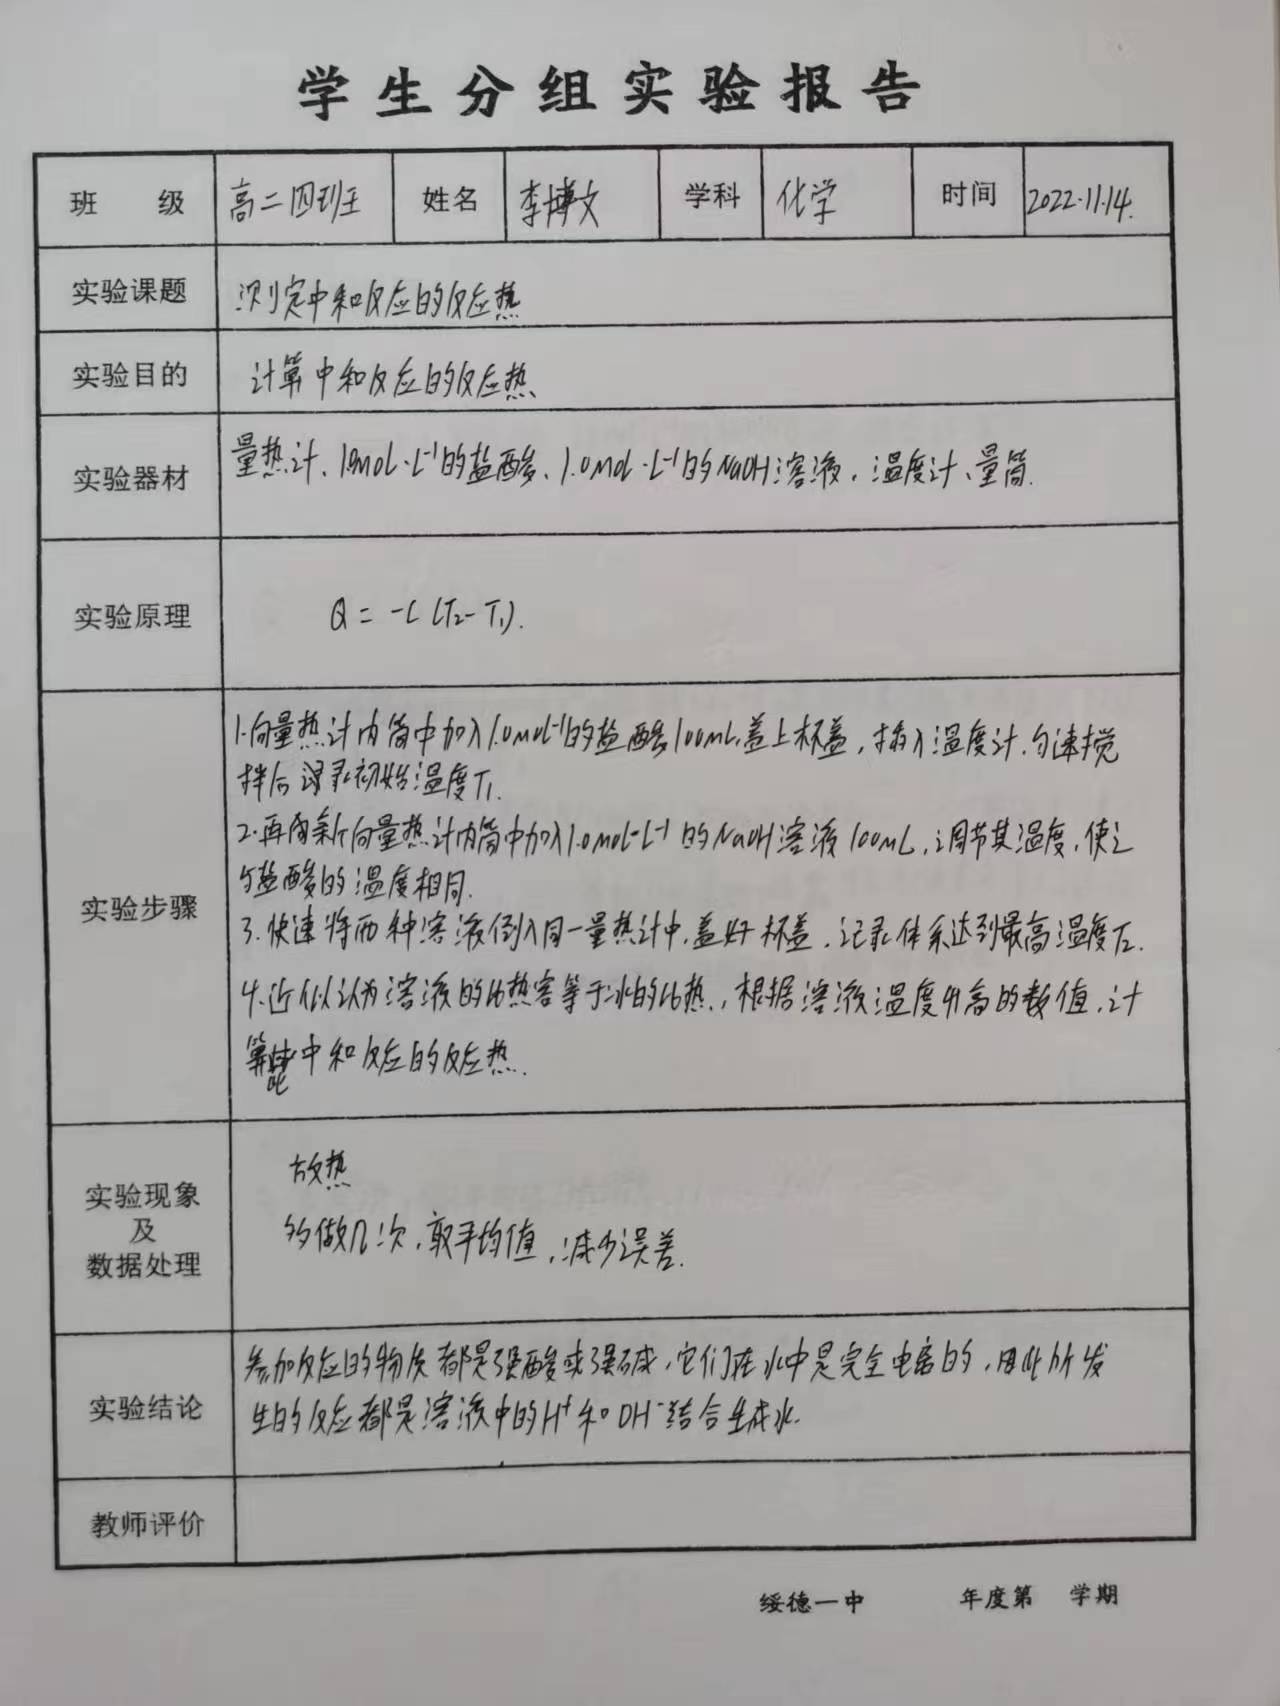 学生分组实验报告
班 级 高二四班 姓名 李博文 学科 化学 时间 2022.11.14.
实验课题 测定中和反应的反应热
实验目的 计算中和反应的反应热
实验器材 量热计、1.0mol·L⁻¹的盐酸、1.0mol·L⁻¹的NaOH溶液,温度计、量筒.
实验原理 Q = -C (T₂-T₁).
实验步骤
1.向量热计内筒中加入1.0mol·L⁻¹的盐酸100mL,盖上杯盖,插入温度计,匀速搅
拌后记录初始温度T₁.
2.再向新量热计内筒中加入1.0mol·L⁻¹的NaOH溶液100mL,调节其温度,使之
与盐酸的温度相同.
3.快速将两种溶液倒入同一量热计中,盖好杯盖,记录体系达到最高温度T₂.
4.近似认为溶液的比热容等于水的比热,根据溶液温度升高的数值,计
算此中和反应的反应热.
实验现象
及
数据处理
放热
多做几次,取平均值,减少误差.
实验结论
参加反应的物质都是强酸或强碱,它们在水中是完全电离的,因此所发
生的反应都是溶液中的H⁺和OH⁻结合生成水.
教师评价
绥德一中 年度第 学期